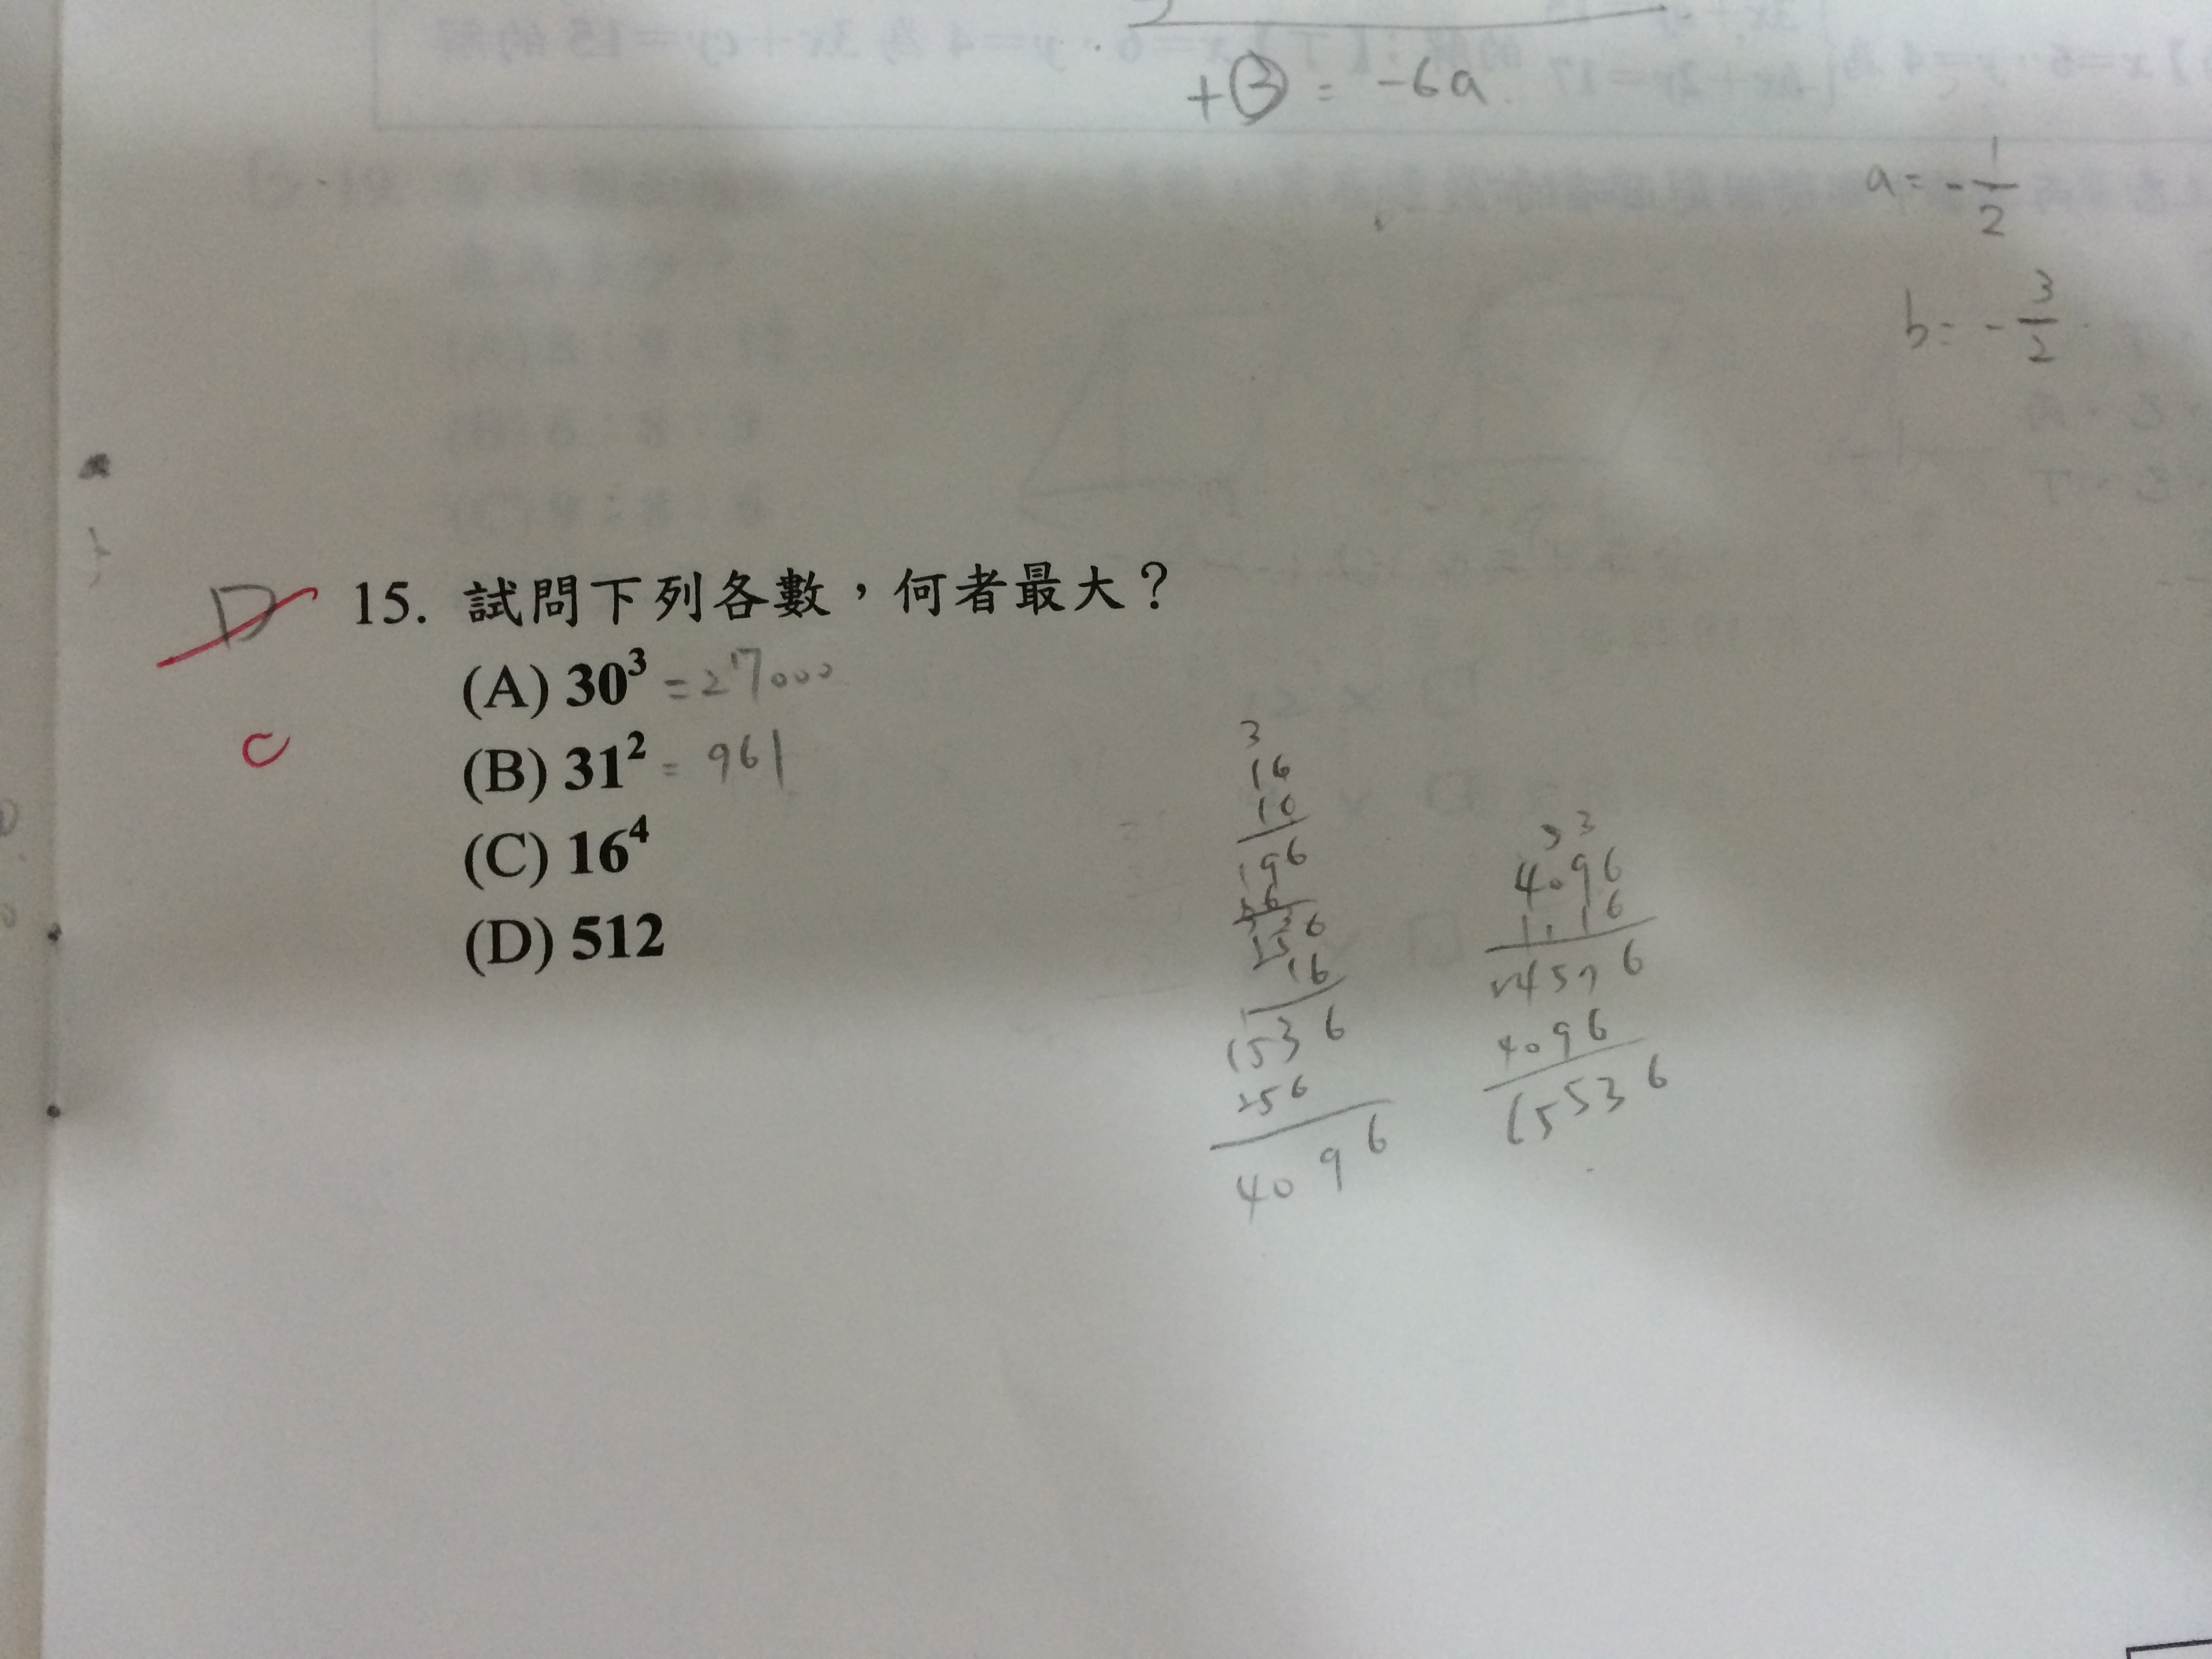 +③ = -6a
a = -1/2
b = -3/2
D 15. 試問下列各數，何者最大？
(A) 30³ = 27000
C
(B) 31² = 961
(C) 16⁴
(D) 512
3
16
16
196
16
256
16
1536
256
4096
3 3
4096
16
24576
4096
65536